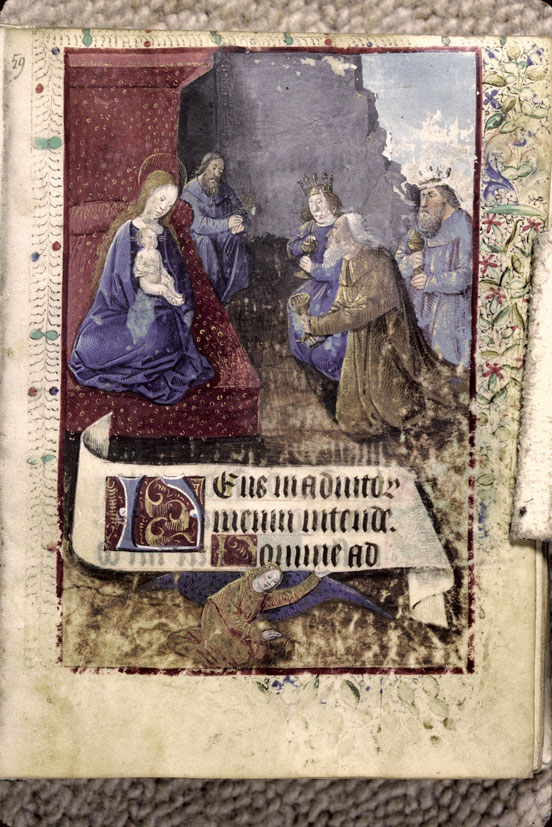 59
Deus in adiutor
meum intende.
Domine ad